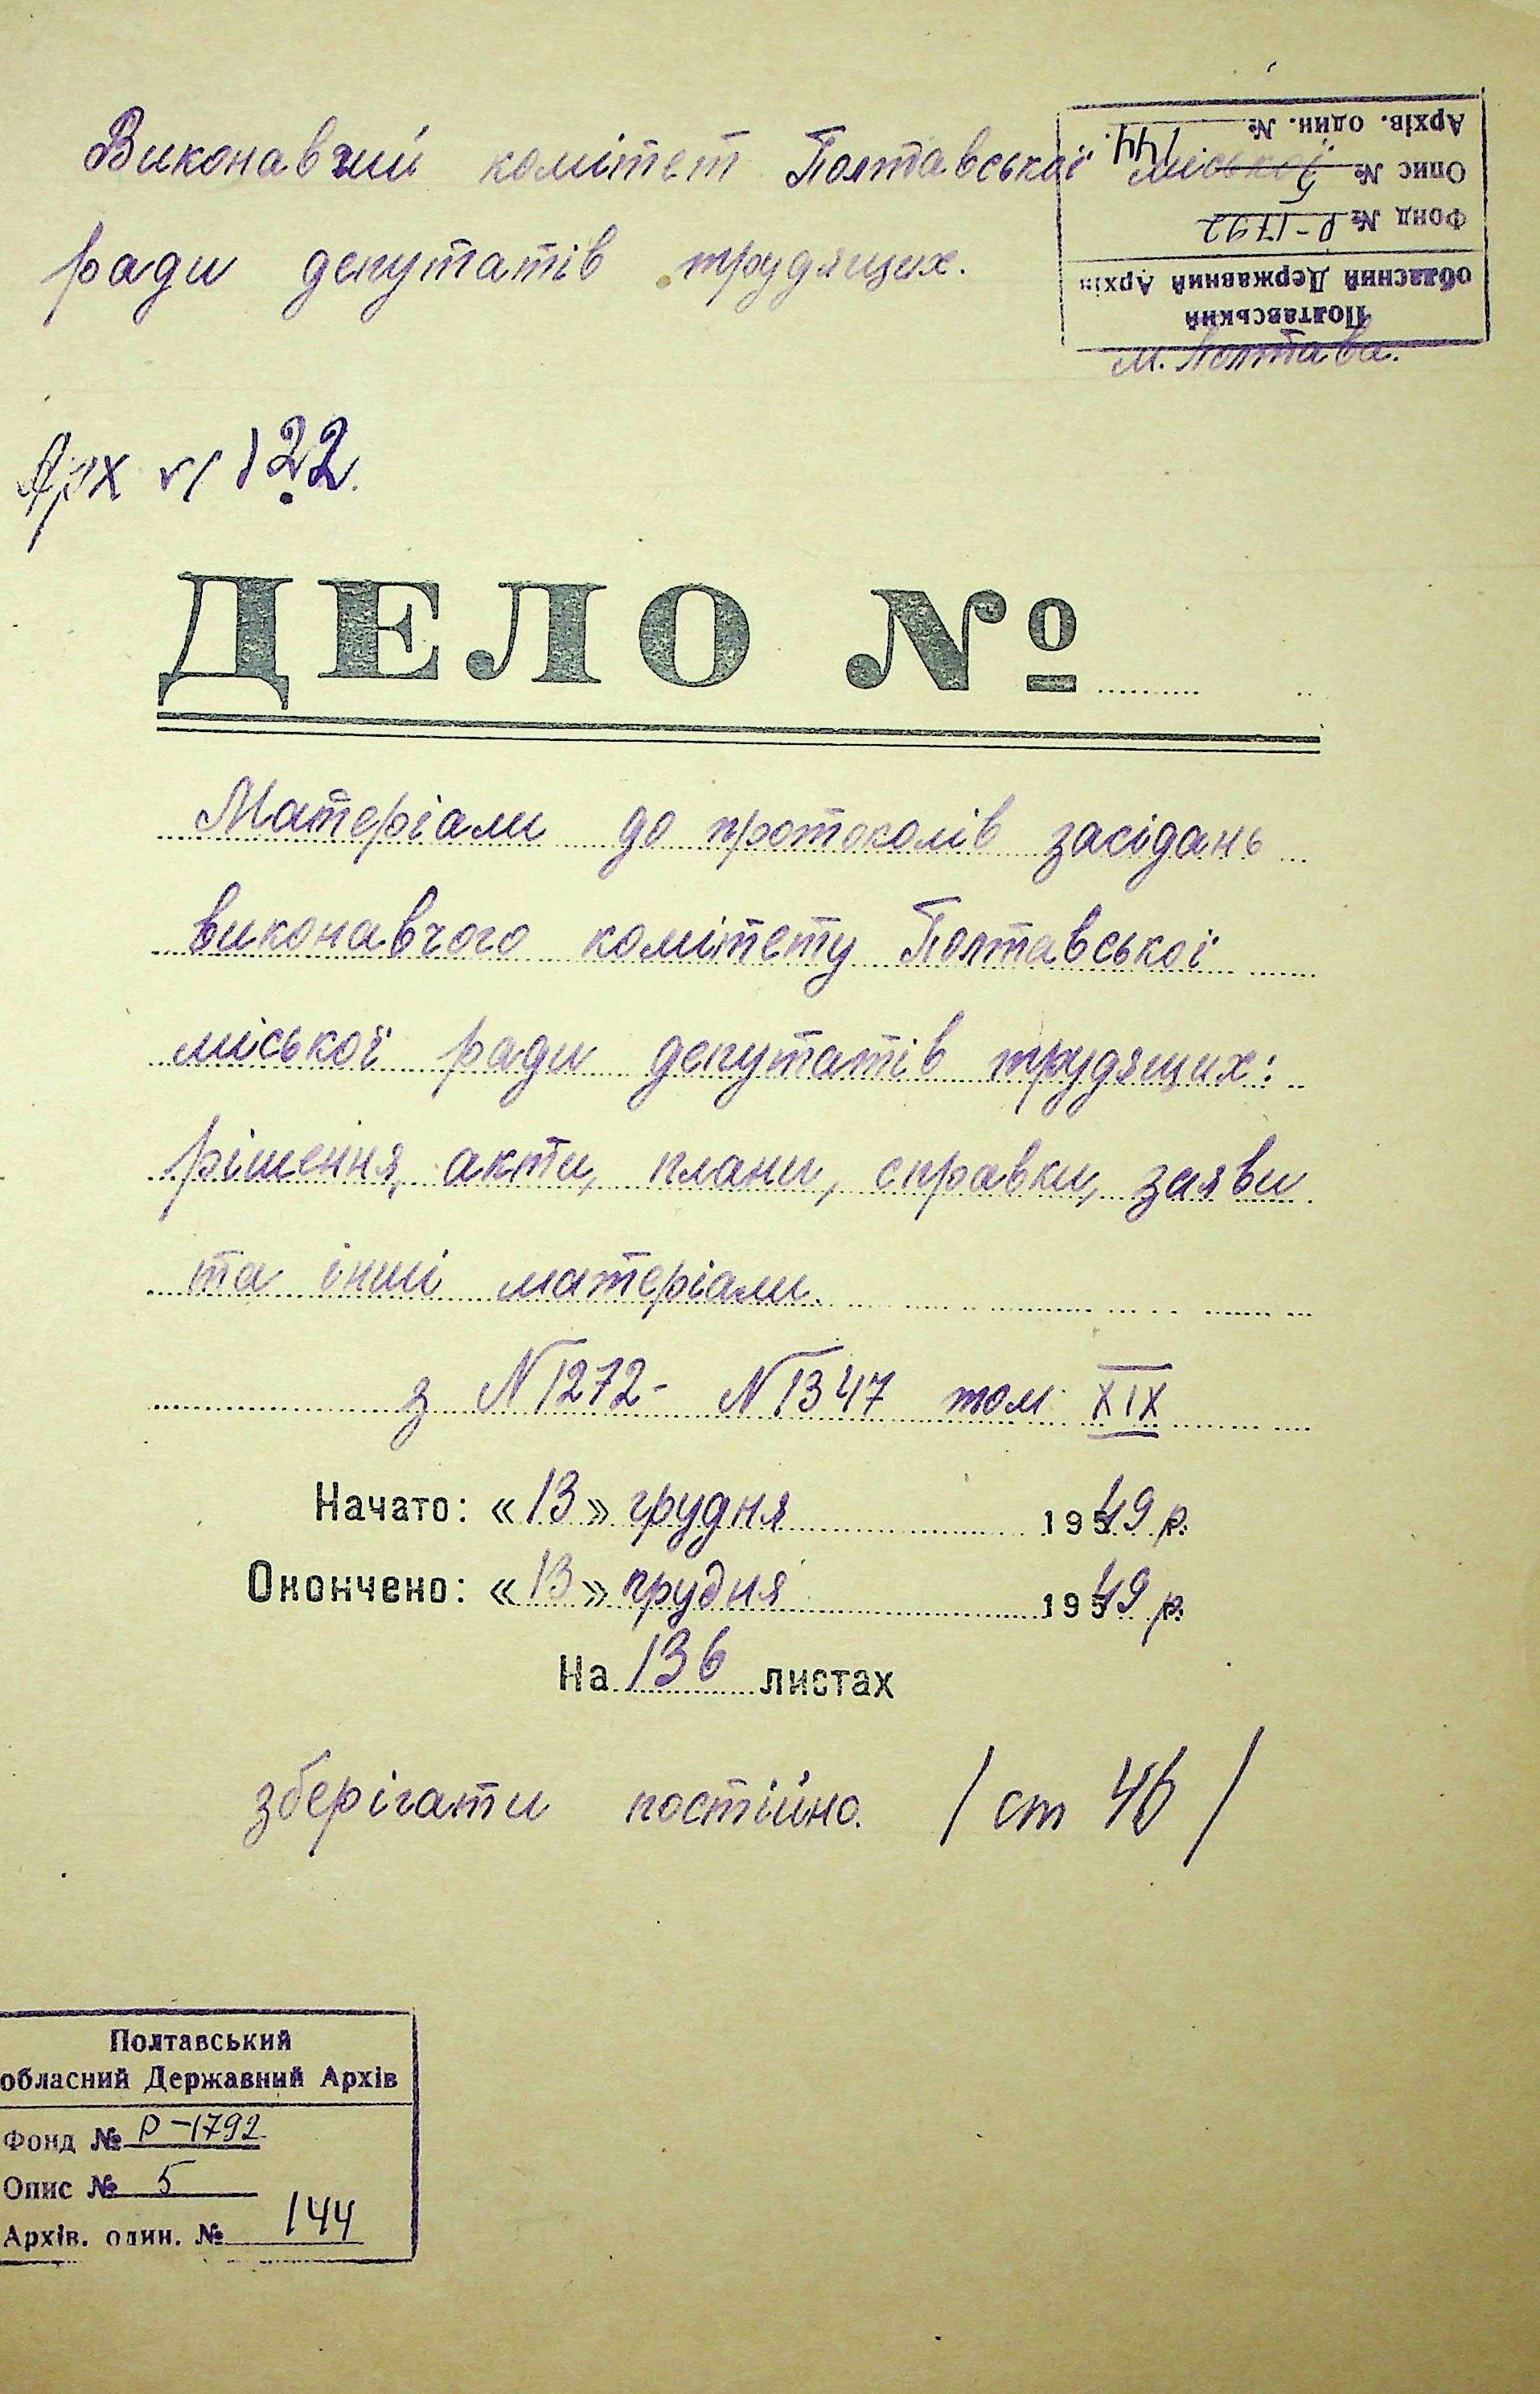 Виконавчий комітет Полтавської міської
ради депутатів трудящих.
м. Полтава.
Полтавський
обласний Державний Архів
Фонд № Р-1792
Опис № 5
Архів. один. № 144.
Арх № 122.
ДЕЛО №
Матеріали до протоколів засідань
виконавчого комітету Полтавської
міської ради депутатів трудящих:
рішення, акти, плани, справки, заяви
та інші матеріали.
з N 1272 - N 1347 том XIX
Начато: «13» грудня 1949 р.
Окончено: «13» грудня 1949 р.
На 136 листах
зберігати постійно. / ст 46 /
Полтавський
обласний Державний Архів
Фонд № Р-1792
Опис № 5
Архів. один. № 144